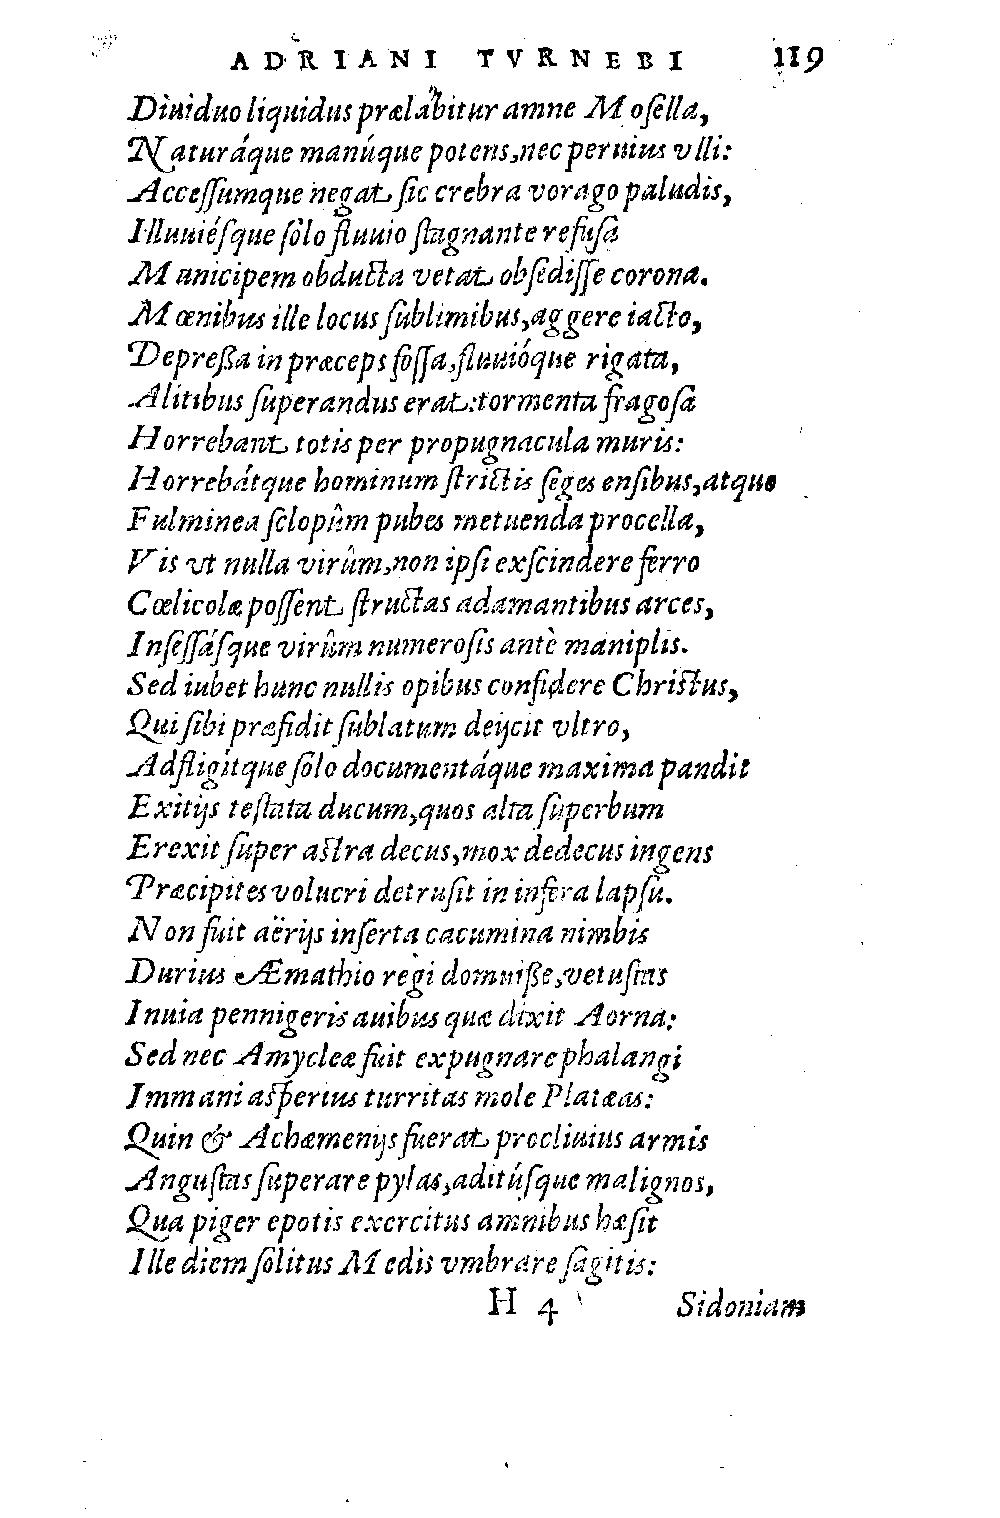 ADRIANI TVRNEBI 119
Diuiduo liquidus prælabitur amne Mosella,
Naturáque manúque potens, nec peruius vlli:
Accessumque negat sic crebra vorago paludis,
Illuuiésque solo fluuio stagnante refusa
Municipem obducta vetat obsedisse corona.
Mœnibus ille locus sublimibus, aggere iacto,
Depreßa in præceps fossa, fluuióque rigata,
Alitibus superandus erat: tormenta fragosa
Horrebant totis per propugnacula muris:
Horrebátque hominum strictis seges ensibus, atque
Fulminea sclopûm pubes metuenda procella,
Vis vt nulla virûm, non ipsi exscindere ferro
Cœlicolæ possent structas adamantibus arces,
Insessásque virûm numerosis antè maniplis.
Sed iubet hunc nullis opibus confidere Christus,
Qui sibi præfidit sublatum deijcit vltro,
Adfligitque solo documentáque maxima pandit
Exitijs testata ducum, quos alta superbum
Erexit super astra decus, mox dedecus ingens
Præcipites volucri detrusit in infera lapsu.
Non fuit aërijs inserta cacumina nimbis
Durius Æmathio regi domuiße, vetustas
Inuia pennigeris auibus quæ dixit Aorna:
Sed nec Amycleæ fuit expugnare phalangi
Immani asperius turritas mole Platæas:
Quin & Achæmenijs fuerat procliuius armis
Angustas superare pylas, aditúsque malignos,
Qua piger epotis exercitus amnibus hæsit
Ille diem solitus Medis vmbrare sagitis:
H 4 Sidoniam